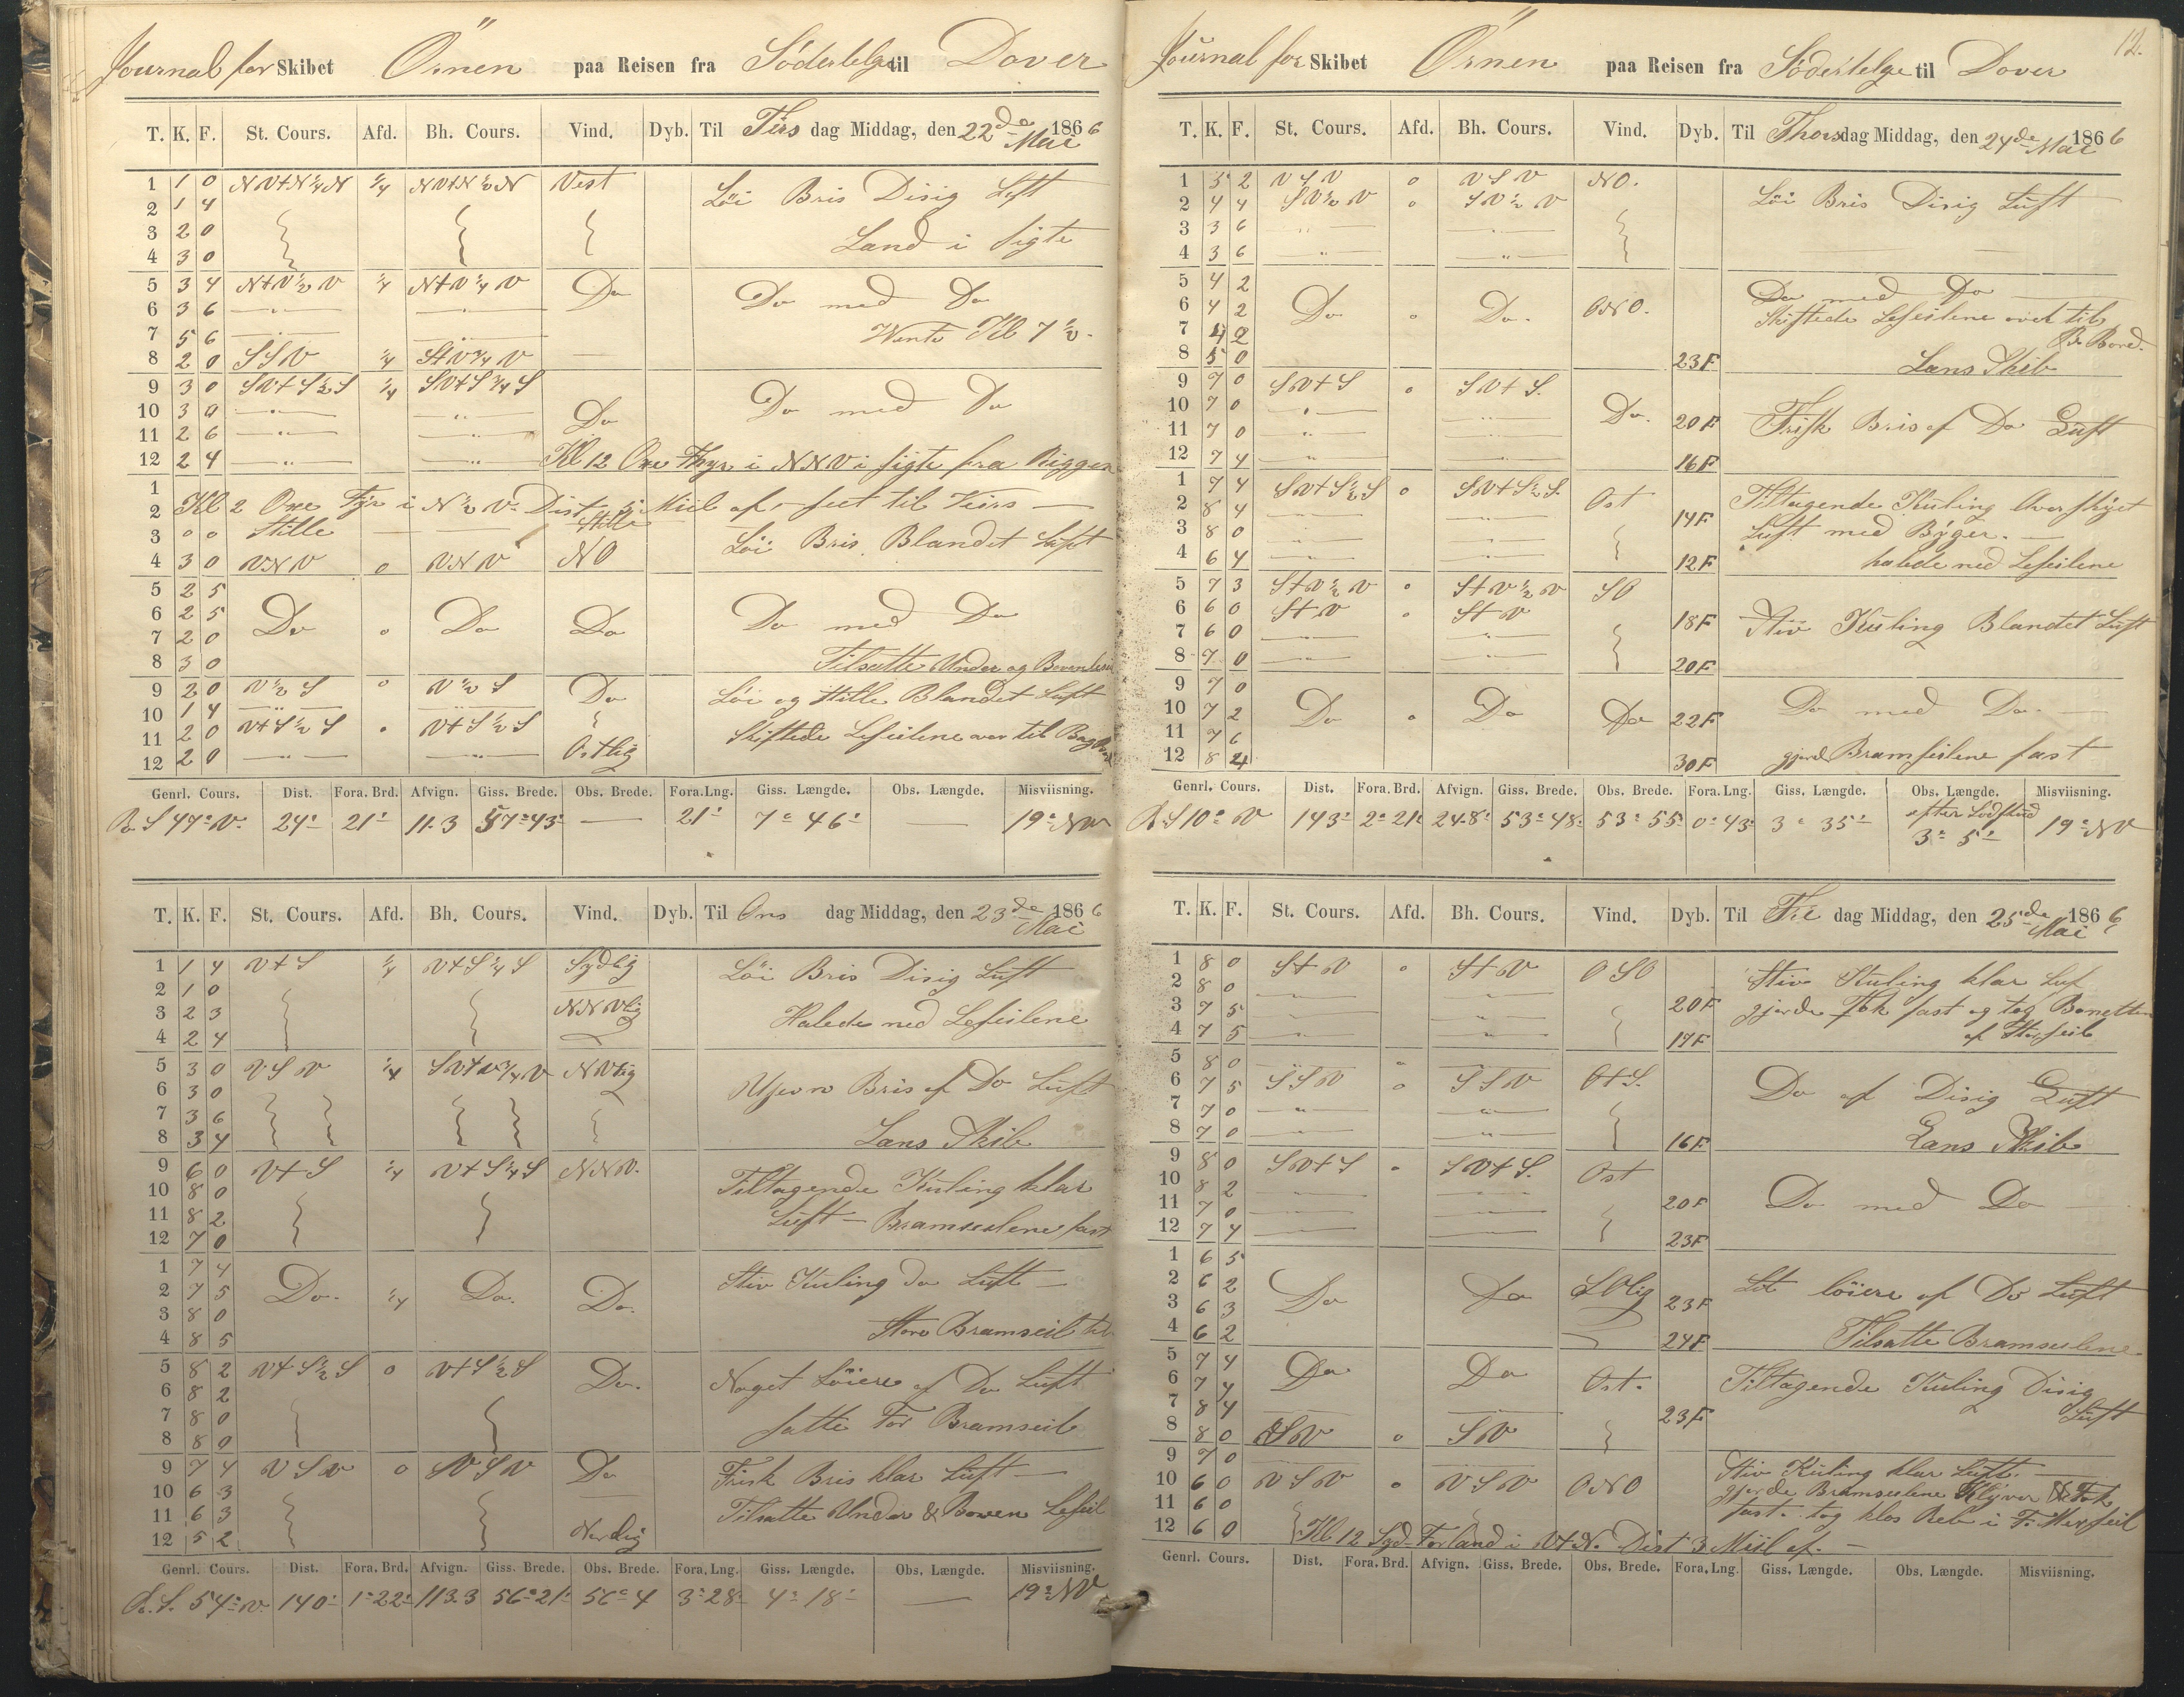 Journal for Skibet Örnen paa Reisen fra Södertelge til Dover
T. K. F. St. Cours. Afd. Bh. Cours. Vind. Dyb. Til Tirs dag Middag, den 22de Mai 1866
1 1 0 NV+N¼N ¼ NV+N½N Vest Löi Bris Disig Luft
2 1 4
3 2 0 Land i sigte
4 3 0
5 3 4 N+V½V ¼ N+V¼V Do Do med Do
6 3 6 — " — — " —
7 5 6 Kl 7½
8 2 0 SSV ¼ S+V¾V
9 3 0 SV+S½S ¼ SV+S¾S Do med Do
10 3 0 — " — — " — Do
11 2 6 — " — — " —
12 2 4 — " — — " — Kl 12 Oxe Fyr i NNV i sigte fra Riggen
1
2 Kl 2 Oxe Fyr i N½V Dist Miil af
3 0 0 Stille Stille Löi Bris Blandet Luft
4 3 0 VNV 0 VNV NO
5 2 5
6 2 5 Do 0 Do Do Do med Do
7 2 0
8 3 0 Tilsatte Under og
9 2 0 V½S 0 V½S Do Löi og Stille Blandet Luft
10 1 4
11 2 0 V+S½S 0 V+S½S Skiftede Leseilene over til
12 2 0 — " — — " — Ostlig
Genrl. Cours. Dist. Fora. Brd. Afvign. Giss. Brede. Obs. Brede. Fora.Lng. Giss. Længde. Obs. Længde. Misviisning.
R. S 47° V. 24' 21' 11.3 57°43' — 21' 7° 46' — 19° NV
T. K. F. St. Cours. Afd. Bh. Cours. Vind. Dyb. Til Ons dag Middag, den 23de Mai 1866
1 1 4 V+S ¼ V+S¼S Sydlig Löi Bris Disig Luft
2 1 0 NNVlig
3 2 3 Halede ned Leseilene
4 2 4
5 3 0 VSV ¼ SV+V¾V NVlig Ujevn Bris af Do Luft
6 3 0
7 3 6
8 3 4 Lans Skib
9 6 0 V+S ¼ V+S¼S NNV. Tiltagende Kuling klar
10 8 0
11 8 2 Luft — Bramseilene fast
12 7 0
1 7 4 Stiv Kuling Do Luft —
2 7 5 Do. ¼ Do. Do.
3 8 0
4 8 5 Store Bramseil til
5 8 2 V+S½S 0 V+S½S Do. Noget Löiere af Do Luft
6 8 2
7 8 0 satte For Bramseil
8 8 0
9 7 4 VSV 0 VSV Do Frisk Bris klar Luft —
10 6 3
11 6 3 Tilsatte Under & Boven Leseil
12 5 2 Nordlig
Genrl. Cours. Dist. Fora. Brd. Afvign. Giss. Brede. Obs. Brede. Fora.Lng. Giss. Længde. Obs. Længde. Misviisning.
R. S. 54° V. 140' 1°22' 113.3 56°21' 56°4 3°28' 4° 18' — 19° NV
12.
Journal for Skibet Örnen paa Reisen fra Södertelge til Dover
T. K. F. St. Cours. Afd. Bh. Cours. Vind. Dyb. Til Thorsdag Middag, den 24de Mai 1866
1 3 2 VSV 0 VSV NO. Löi Bris Disig Luft
2 4 4 SV½V 0 SV½V
3 3 6 — " — — " —
4 3 6 — " — — " —
5 4 2 Do med Do
6 4 2 Do 0 Do. ONO. Skiftede Leseilene over til
7 4 2 B. Bord.
8 5 0 23F Lans Skib
9 7 0 SV+S 0 SV+S.
10 7 0 — " — — " — Do. 20F Frisk Bris af Do Luft
11 7 0 — " — — " —
12 7 4 — " — — " — 16F
1 7 4 SV+S½S 0 SV+S½S. Ost Tiltagende Kuling Overskyet
2 8 4 — " — — " — 14F Luft med Byger. —
3 8 0 — " — — " —
4 6 4 — " — — " — 12F halede ned Leseilene
5 7 3 S+V½V 0 S+V½V SO
6 6 0 S+V 0 S+V 18F Stiv Kuling Blandet Luft
7 6 0 — " — — " —
8 7 0 — " — — " — 20F
9 7 0
10 7 2 Do 0 Do Do 22F Do med Do. —
11 7 6
12 8 4 30F gjord Bramseilene fast
Genrl. Cours. Dist. Fora. Brd. Afvign. Giss. Brede. Obs. Brede. Fora.Lng. Giss. Længde. Obs. Længde. Misviisning.
R. S 10° V 143' 2°21' 24.8' 53°48' 53°55' 0°43' 3° 35' efter Lodskud 3° 5' 19° NV
T. K. F. St. Cours. Afd. Bh. Cours. Vind. Dyb. Til Fre dag Middag, den 25de Mai 1866
1 8 0 S+V 0 S+V OSO Stiv Kuling klar Luf
2 8 0 — " — — " — 20F gjorde Fok fast og tog Bonetten
3 7 5 — " — — " — af Storseil
4 7 5 — " — — " — 17F
5 8 0
6 7 5 SSV 0 SSV O+S. Do af Disig Luft
7 7 0 — " — — " —
8 7 0 — " — — " — 16F Lans Skib
9 8 0 SV+S 0 SV+S. Ost
10 8 2 — " — — " — 20F Do med Do
11 7 0 — " — — " —
12 7 4 — " — — " — 23F
1 6 5
2 6 2 Do Do SOlig 23F Lit löiere af Do Luft
3 6 3
4 6 2 24F Tilsatte Bramseilene
5 7 4 Do Do Tiltagende Kuling Disig
6 7 4 Ost. Luft
7 8 4 23F
8 8 0 SV 0 SV
9 7 0 Stiv Kuling klar Luft. —
10 6 0 VSV 0 VSV ONO gjorde Bramseilene Klyver & Fok
11 6 0 fast. tog klos Reb i F. Merseil
12 6 0 Kl 12 Syd-Forland i V+N. Dist 3 Miil af. —
Genrl. Cours. Dist. Fora. Brd. Afvign. Giss. Brede. Obs. Brede. Fora.Lng. Giss. Længde. Obs. Længde. Misviisning.